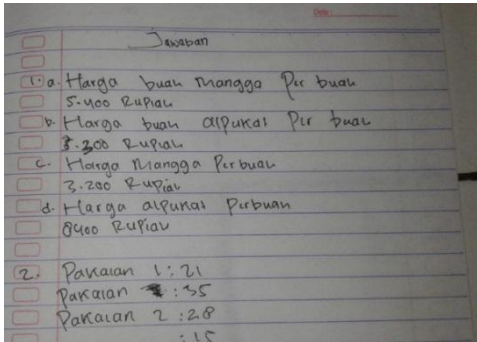 Date:
Jawaban
1. a. Harga buah mangga Per buah
5.400 Rupiah
b. Harga buah alpukat Per buah
3.300 Rupiah
c. Harga Mangga Perbuah
3.200 Rupiah
d. Harga alpukat Perbuah
8400 Rupiah
2. Pakaian 1 : 21
Pakaian : 35
Pakaian 2 : 28
: 15